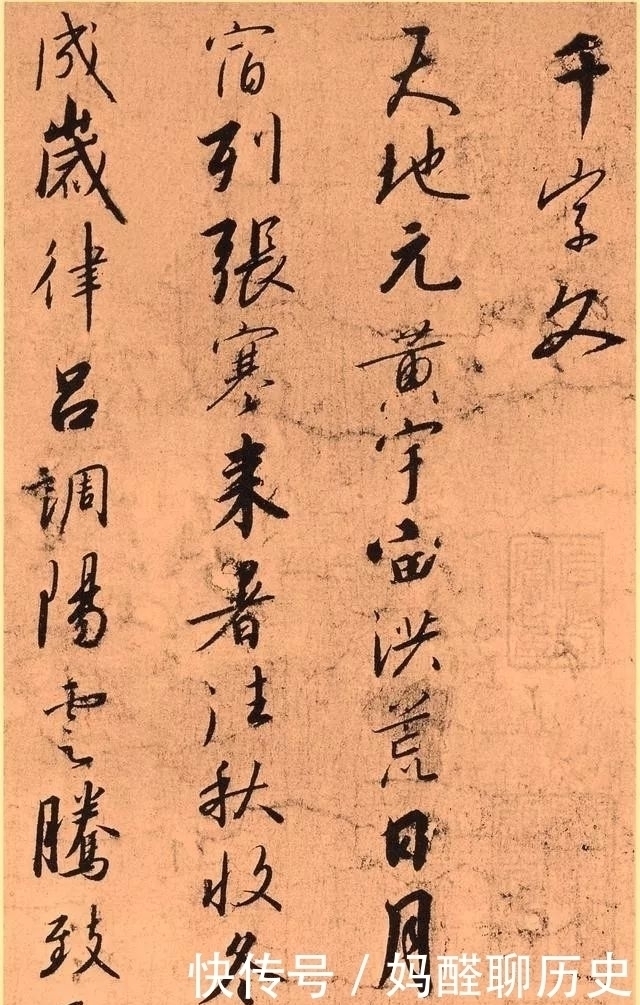 千字文
天地元黄宇宙洪荒日月
宿列張寒来暑往秋收冬
成歲律吕調陽雲騰致
快传号/妈醛聊历史